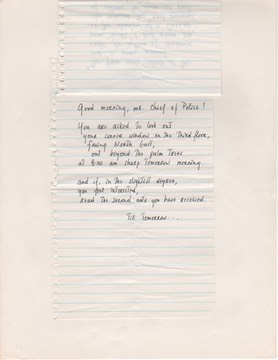 Good morning, Mr. Chief of Police!
You are asked to look out
your corner window on the third floor,
facing North East,
out beyond the palm trees
at 8:00 am sharp tomorrow morning.
and if, in the slightest degree,
you are interested,
read the second note you have received.
Till Tomorrow...